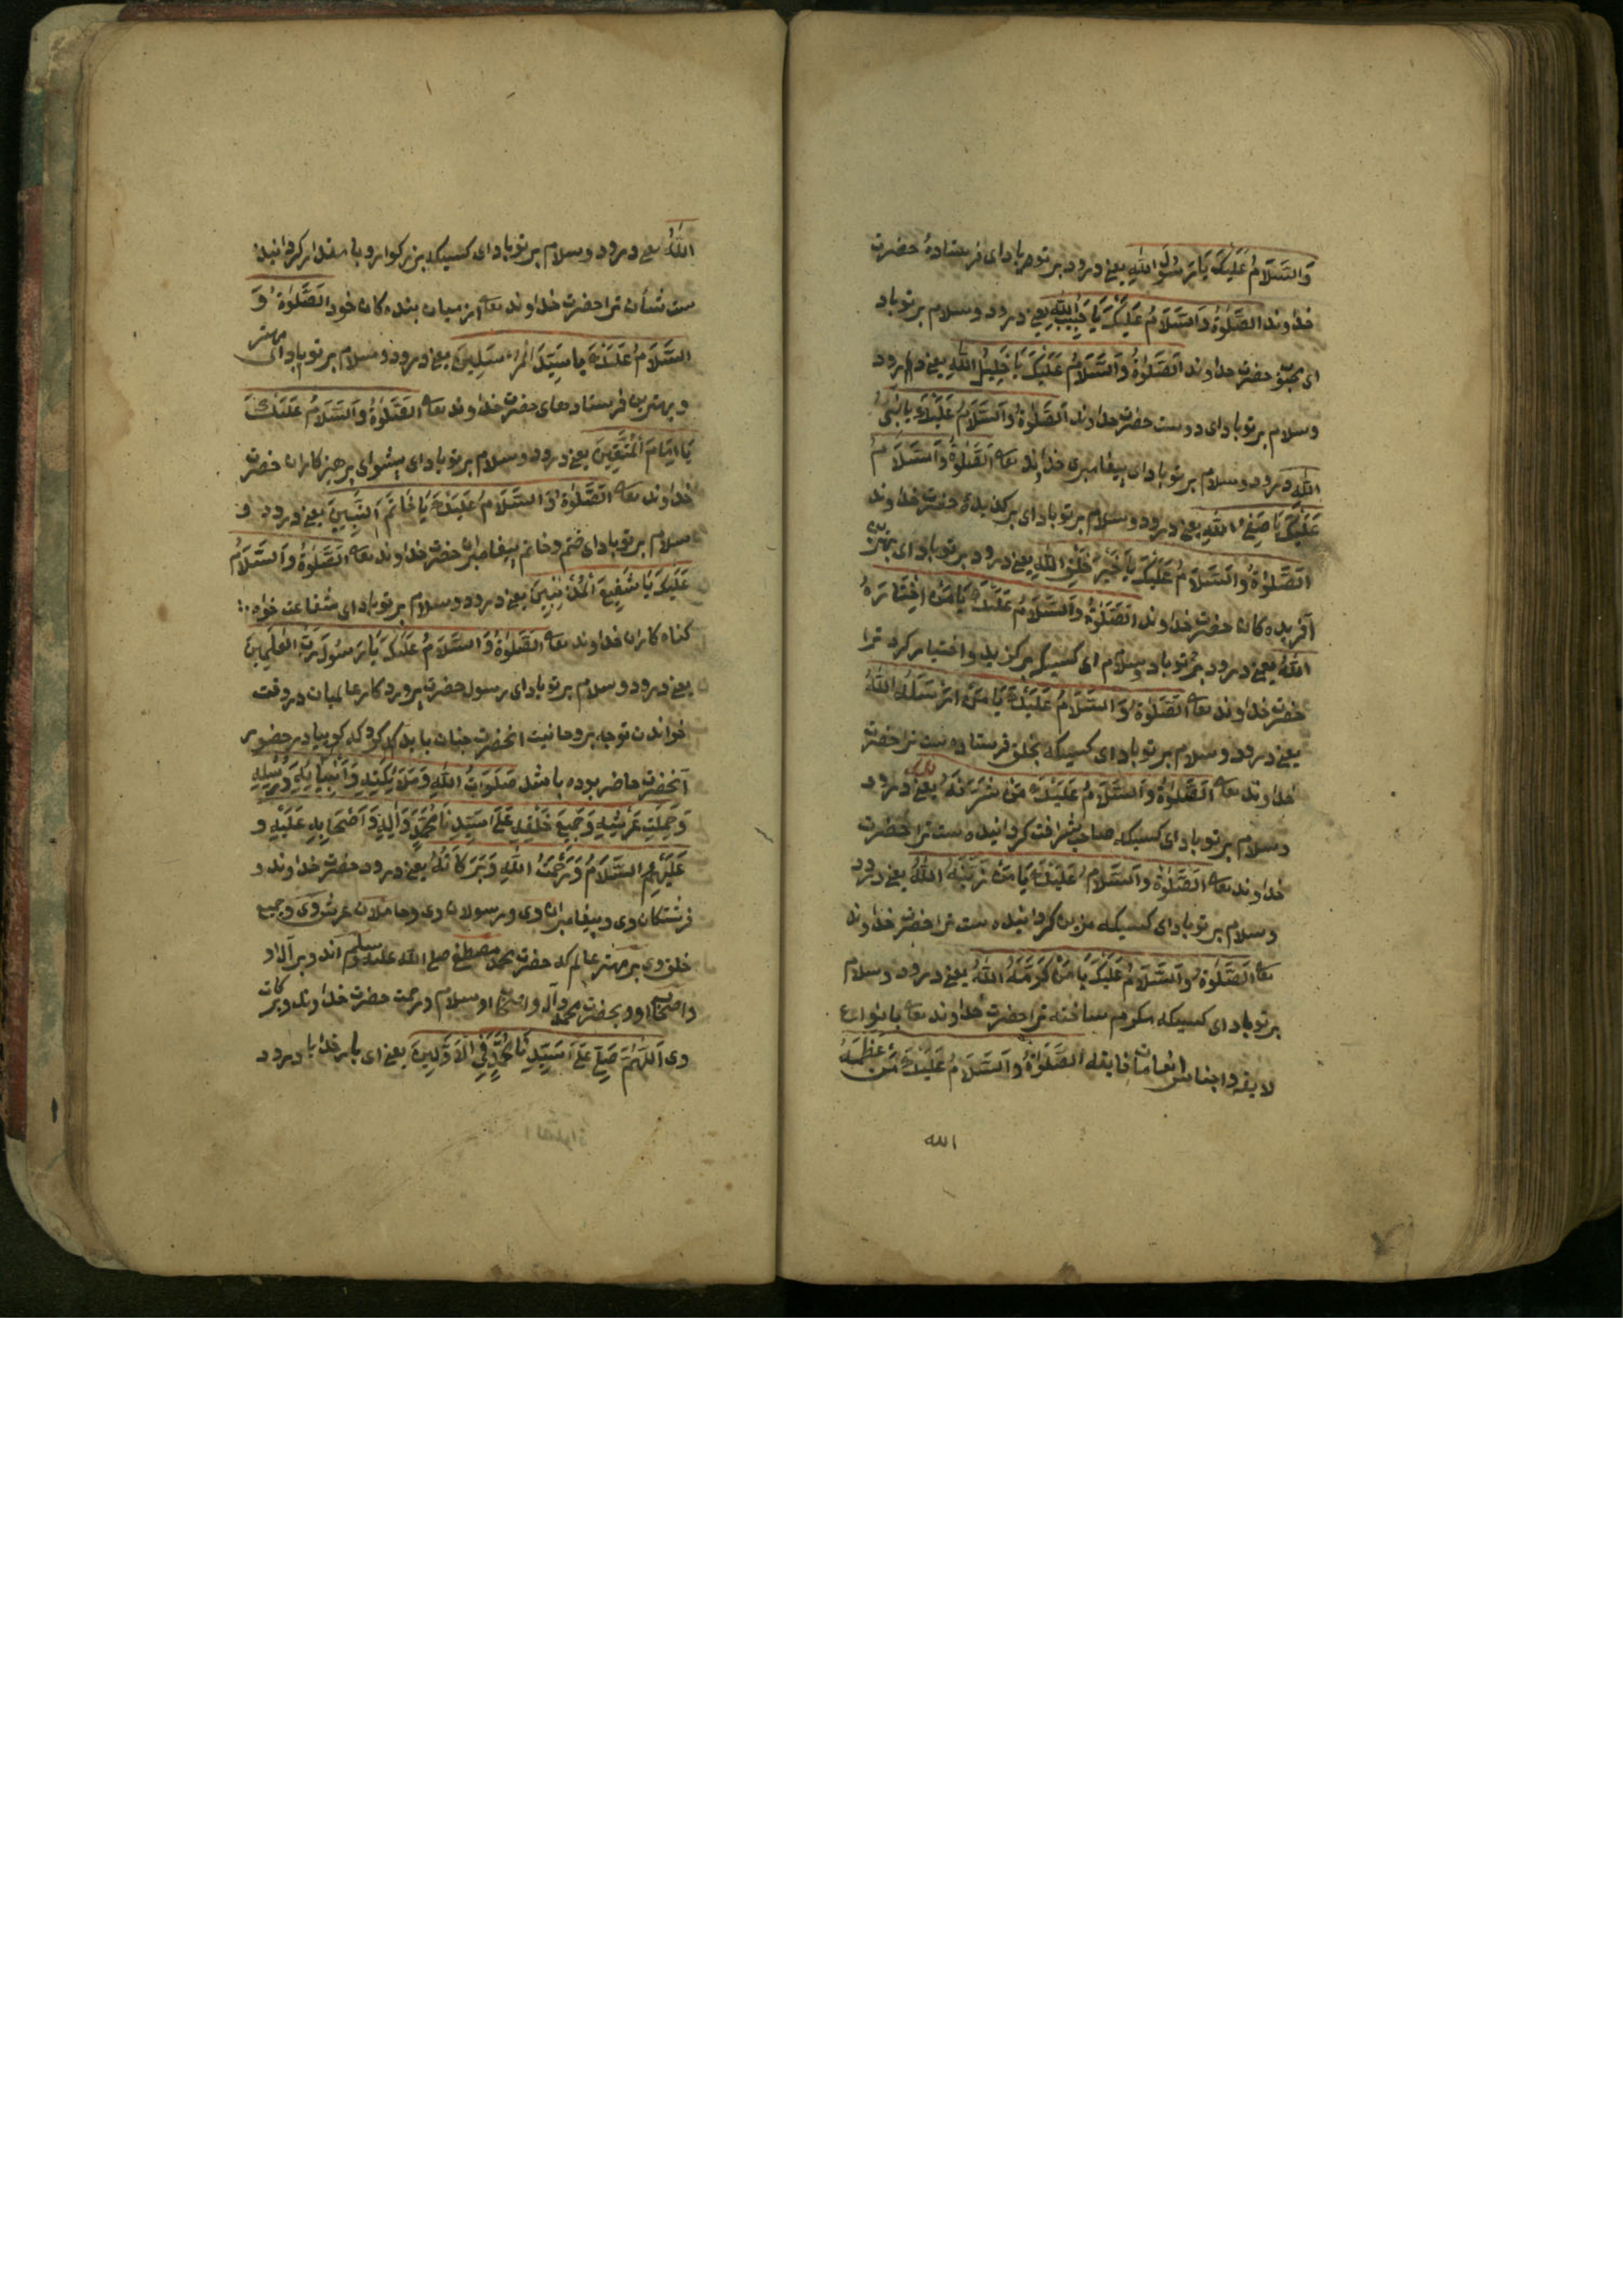 وَالسَّلَامُ عَلَيْكَ يَا رَسُوْلَ اللهِ یعنی درود بر تو باد ای فرستادهٔ حضرت
خداوند الصَّلٰوةُ وَالسَّلَامُ عَلَيْكَ يَا حَبِيْبَ اللهِ یعنی درود و سلام بر تو باد
ای محبوب حضرت خداوند الصَّلٰوةُ وَالسَّلَامُ عَلَيْكَ يَا خَلِيْلَ اللهِ یعنی درود
و سلام بر تو باد ای دوست حضرت خداوند الصَّلٰوةُ وَالسَّلَامُ عَلَيْكَ يَا نَبِیَّ
اللهِ درود و سلام بر تو باد ای پیغامبری خداوند تعا الصَّلٰوةُ وَالسَّلَامُ
عَلَيْكَ يَا صَفِیَّ اللهِ یعنی درود و سلام بر تو باد ای برکزیدهٔ حضرت خداوند
الصَّلٰوةُ وَالسَّلَامُ عَلَيْكَ يَا خَيْرَ خَلْقِ اللهِ یعنی درود بر تو باد ای بهترین
آفریده کان حضرت خداوند الصَّلٰوةُ وَالسَّلَامُ عَلَيْكَ يَا مَنْ اخْتَارَهُ
اللهُ یعنی درود بر تو باد و سلام ای کسیکه برکزید و اختیار کرد ترا
حضرت خداوند تعا الصَّلٰوةُ وَالسَّلَامُ عَلَيْكَ يَا مَنْ اَرْسَلَهُ اللهُ
یعنی درود و سلام بر تو باد ای کسیکه بخلق فرستاده ست ترا حضرت
خداوند تعا الصَّلٰوةُ وَالسَّلَامُ عَلَيْكَ مَنْ شَرَّفَهُ الله یعنی درود
و سلام بر تو باد ای کسیکه صاحب شرافت کردانیده ست ترا حضرت
خداوند تعا الصَّلٰوةُ وَالسَّلَامُ عَلَيْكَ يَا مَنْ زَيَّنَهُ اللهُ یعنی درود
و سلام بر تو باد ای کسیکه مزین کردانیده ست ترا حضرت خداوند
تعا الصَّلٰوةُ وَالسَّلَامُ عَلَيْكَ يَا مَنْ كَرَّمَهُ اللهُ یعنی درود و سلام
بر تو باد ای کسیکه مکرم ساخته ترا حضرت خداوند تعا بانواع
لایقه و اجناس انعامات فایقه الصَّلٰوةُ وَالسَّلَامُ عَلَيْكَ مَنْ عَظَّمَهُ
الله
اللهُ یعنی درود و سلام بر تو باد ای کسیکه بزرکوار و با مقدار کردانیده
ست شأن ترا حضرت خداوند تعا از میان بنده کان خود الصَّلٰوةُ وَ
السَّلَامُ عَلَيْكَ يا سَيِّدَ الْمُرْسَلِيْنَ یعنی درود و سلام بر تو باد ای مهتر
و بهترین فرستادهای حضرت خداوند تعا الصَّلٰوةُ وَالسَّلَامُ عَلَيْكَ
يَا اِمَامَ الْمُتَّقِيْنَ یعنی درود و سلام بر تو باد ای پیشوای پرهیزکاران حضرت
خداوند تعا الصَّلٰوةُ وَالسَّلَامُ عَلَيْكَ يَا خَاتَمَ النَّبِيِّيْنَ یعنی درود و
سلام بر تو باد ای ختم و خاتم پیغامبران حضرت خداوند تعا الصَّلٰوةُ وَالسَّلَامُ
عَلَيْكَ يَا شَفِيْعَ الْمُذْنِبِيْنَ یعنی درود و سلام بر تو باد ای شفاعت خواه
کناه کاران خداوند تعا الصَّلٰوةُ وَالسَّلَامُ عَلَيْكَ يَا رَسُوْلَ رَبِّ الْعٰلَمِيْنَ
یعنی درود و سلام بر تو باد ای رسول حضرت پروردکار عالمیان در وقت
خواندن توجه بروحانیت انحضرت چنان باید کرد که کویا در حضور
آنحضرت حاضر بوده باشد صَلَوَاتُ اللهِ وَمَلَائِكَتِهِ وَاَنْبِيَائِهِ وَرُسُلِهِ
وَحَمَلَتِ عَرْشِهِ وَجَمِيْعِ خَلْقِهِ عَلٰى سَيِّدِنَا مُحَمَّدٍ وَاٰلِهِ وَاَصْحَابِهِ عَلَيْهِ وَ
عَلَيْهِمُ السَّلَامُ وَرَحْمَتُ اللهِ وَبَرَكَاتُهُ یعنی درود حضرت خداوند و
فرشتکان وی و پیغامبران وی و رسولان وی و حاملان عرش وی و جمیع
خلق وی بر مهتر عالم که حضرت محمد مصطفی صلی الله علیه وسلم اند و بر آل او
و اصحاب او و بحضرت محمد و آل و اصحاب او سلام و رحمت حضرت خداوند و برکات
وی اَللّٰهُمَّ صَلِّ عَلٰى سَيِّدِنَا مُحَمَّدٍ فِي الْاَوَّلِيْنَ یعنی ای بار خدایا درود